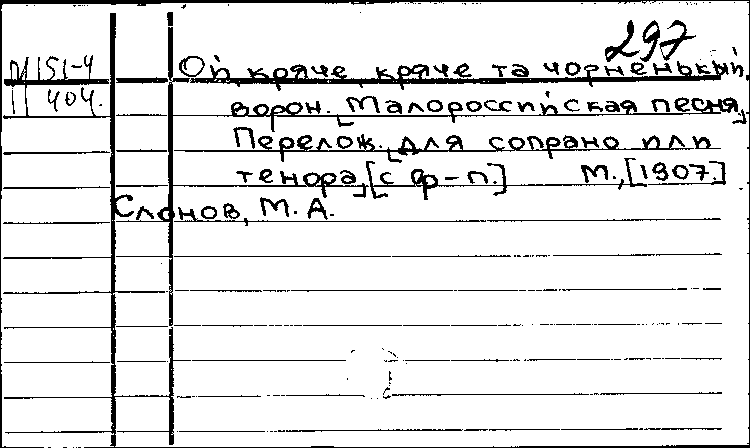 297
М 151-4
404.
Ой, кряче, кряче та чорненький
ворон. [Малороссийская песня.]
Перелож. [для сопрано или
тенора,] [с ф-п.] М., [1907.]
Слонов, М. А.